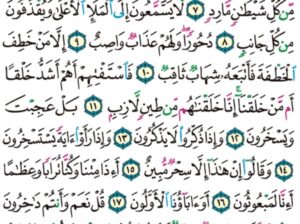 مِّن كُلِّ شَيْطَٰنٍ مَّارِدٍ ٧ لَّا يَسَّمَّعُونَ إِلَى ٱلْمَلَإِ ٱلْأَعْلَىٰ وَيُقْذَفُونَ
مِن كُلِّ جَانِبٍ ٨ دُحُورًا وَلَهُمْ عَذَابٌ وَاصِبٌ ٩ إِلَّا مَنْ خَطِفَ
ٱلْخَطْفَةَ فَأَتْبَعَهُۥ شِهَابٌ ثَاقِبٌ ١٠ فَٱسْتَفْتِهِمْ أَهُمْ أَشَدُّ خَلْقًا
أَم مَّنْ خَلَقْنَآ إِنَّا خَلَقْنَٰهُم مِّن طِينٍ لَّازِبٍۭ ١١ بَلْ عَجِبْتَ
وَيَسْخَرُونَ ١٢ وَإِذَا ذُكِّرُوا۟ لَا يَذْكُرُونَ ١٣ وَإِذَا رَأَوْا۟ ءَايَةً يَسْتَسْخِرُونَ
١٤ وَقَالُوٓا۟ إِنْ هَٰذَآ إِلَّا سِحْرٌ مُّبِينٌ ١٥ أَءِذَا مِتْنَا وَكُنَّا تُرَابًا وَعِظَٰمًا
أَءِنَّا لَمَبْعُوثُونَ ١٦ أَوَءَابَآؤُنَا ٱلْأَوَّلُونَ ١٧ قُلْ نَعَمْ وَأَنتُمْ دَٰخِرُونَ